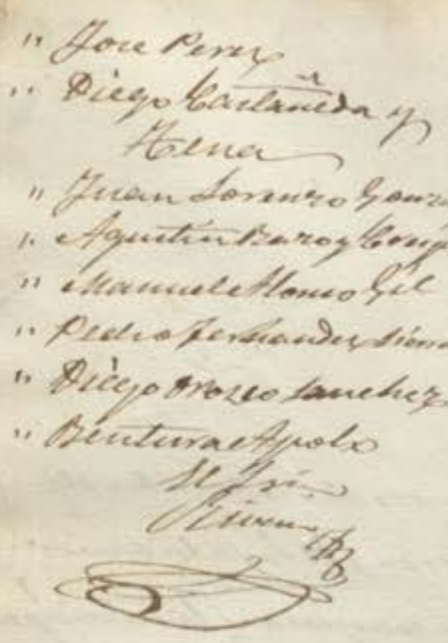 " Jose Perez
" Diego Castañeda y
Hena
" Juan Lorenzo Gonz
" Agustin Bazo y
" Manuel Alonso Gil
" Pedro Fernandez
" Diego Orozco Sanchez
" Bentura Apolo
El Srio